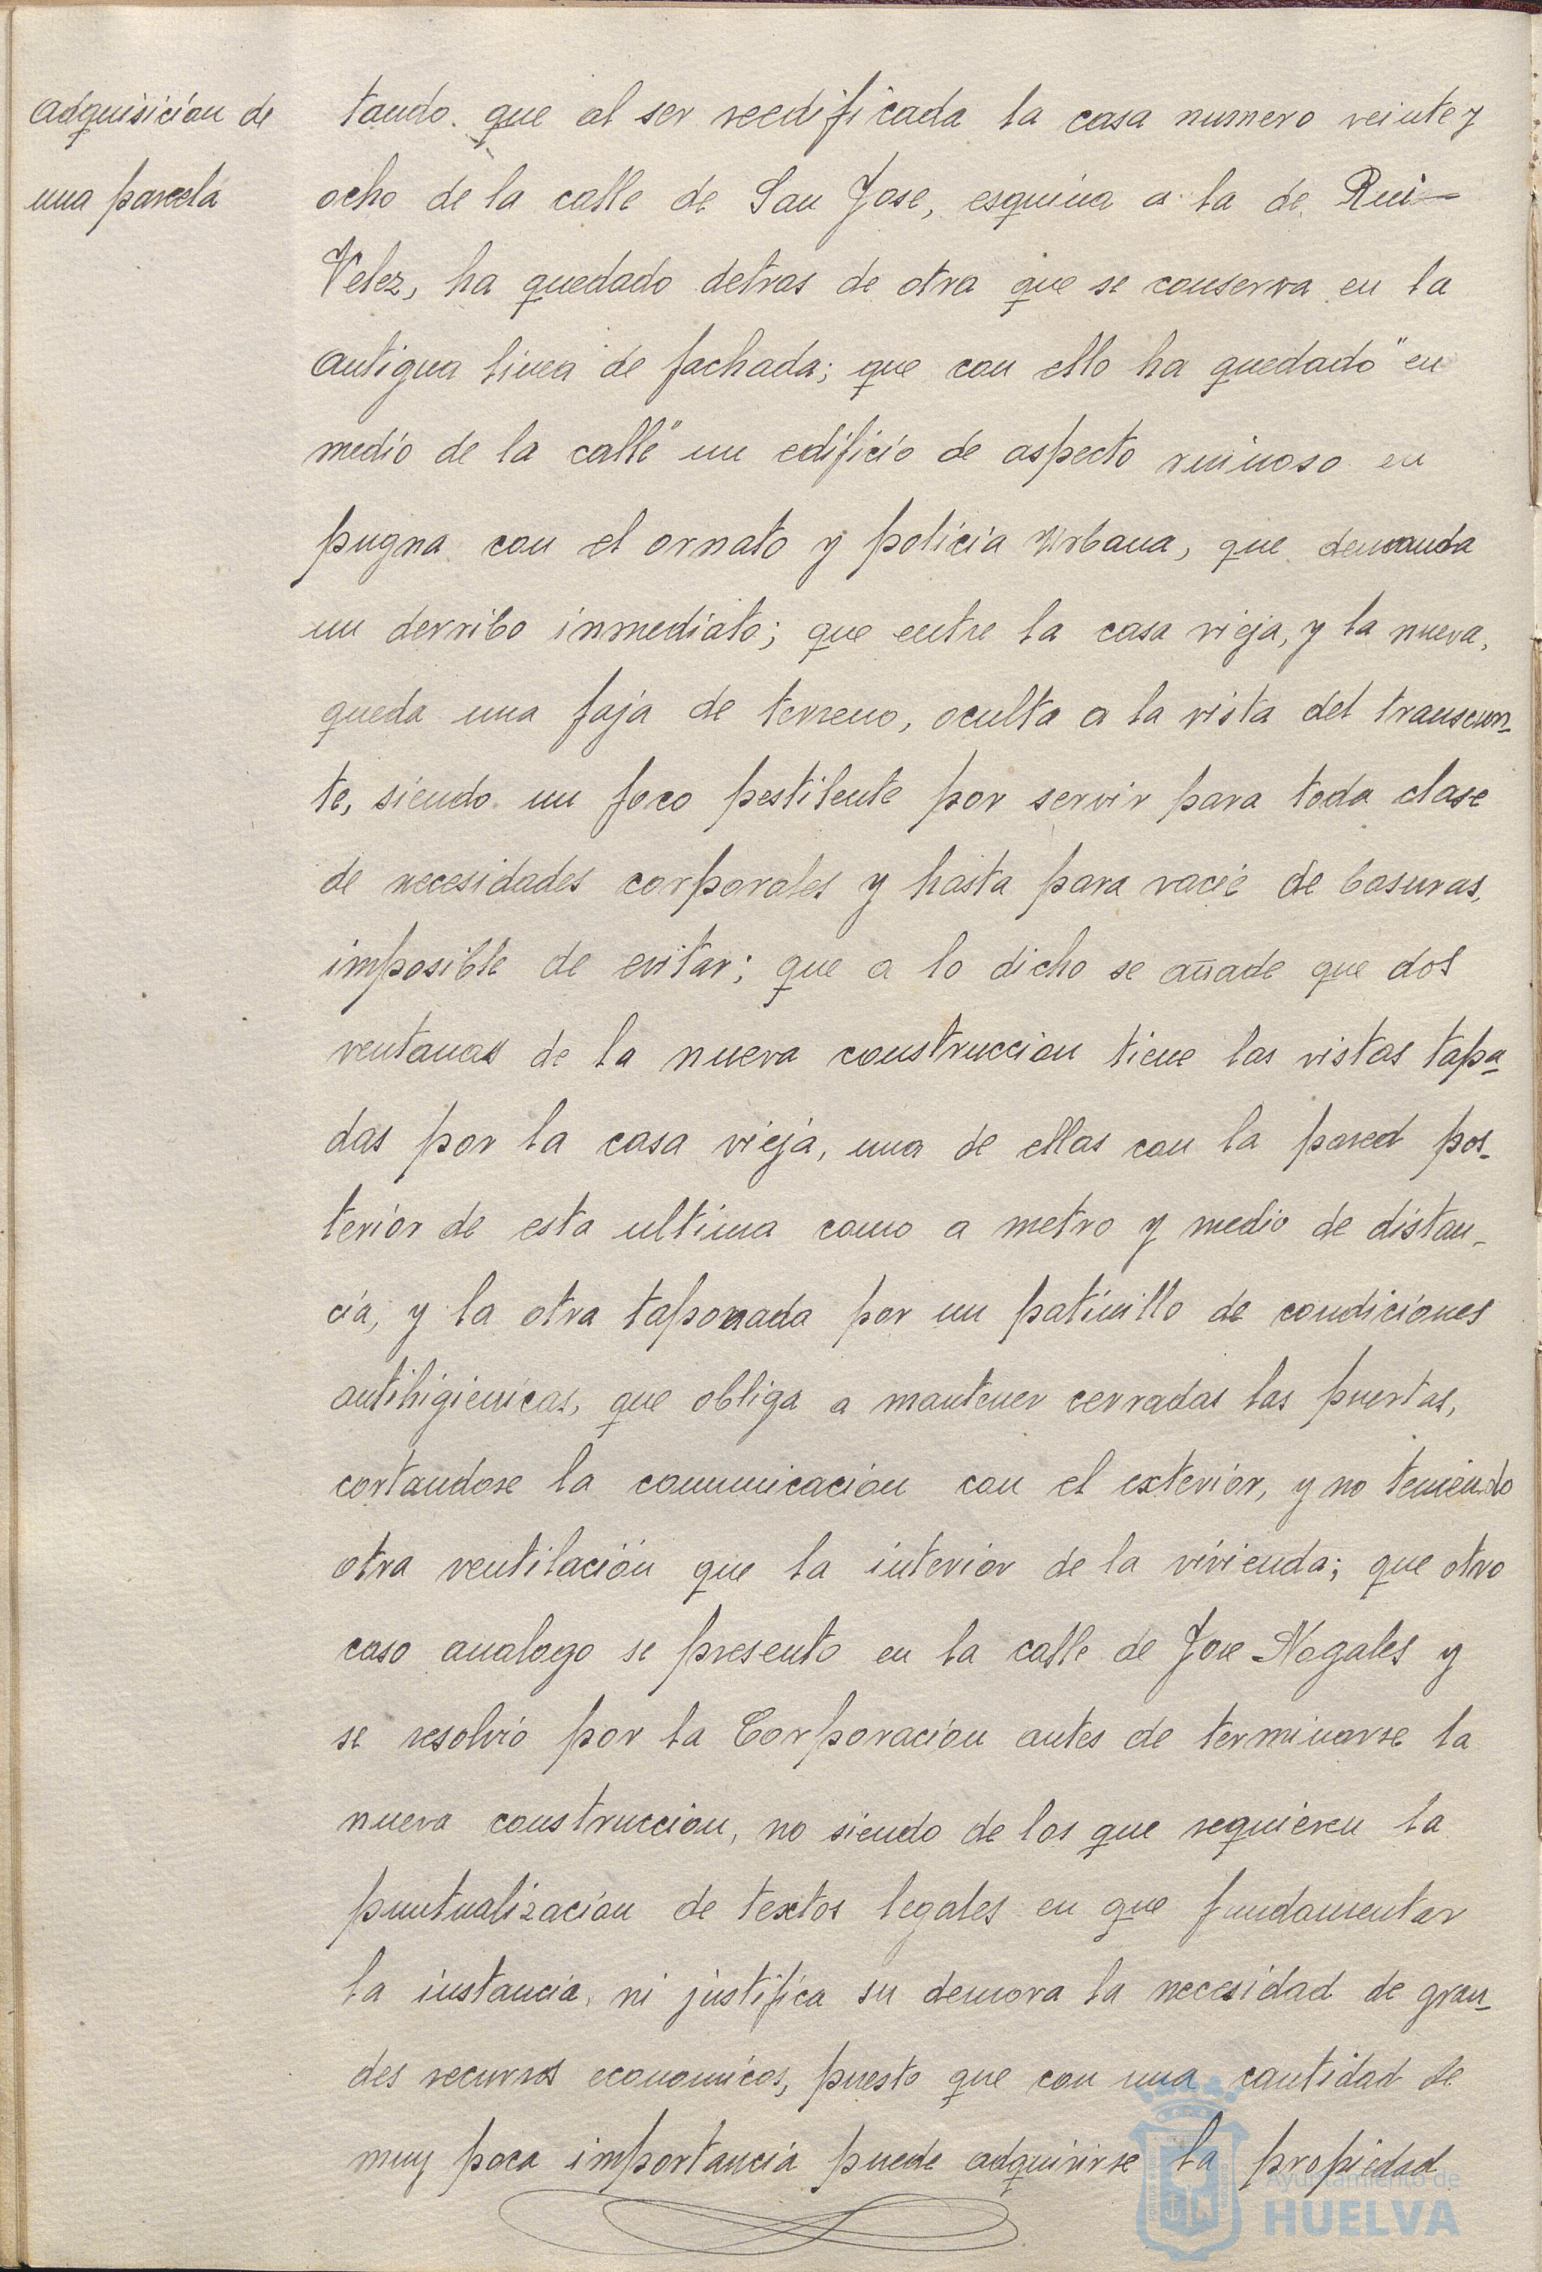 Adquisicion de
una parcela
tando que al ser reedificada la casa numero veinte y
ocho de la calle de San Jose, esquina a la de Rui-
Velez, ha quedado detras de otra que se conserva en la
antigua linea de fachada; que con ello ha quedado "en
medio de la calle" un edificio de aspecto ruinoso en
pugna con el ornato y policia Urbana, que demanda
un derribo inmediato; que entre la casa vieja, y la nueva,
queda una faja de terreno, oculta a la vista del transeun-
te, siendo un foco pestilente por servir para toda clase
de necesidades corporales y hasta para vacie de basuras,
imposible de evitar; que a lo dicho se añade que dos
ventanas de la nueva construccion tiene las vistas tapa-
das por la casa vieja, una de ellas con la pared pos-
terior de esta ultima como a metro y medio de distan-
cia, y la otra taponada por un patinillo de condiciones
antihigienicas, que obliga a mantener cerradas las puertas,
cortandose la comunicacion con el exterior, y no teniendo
otra ventilación que la interior de la vivienda; que otro
caso analogo se presento en la calle de Jose Nogales y
se resolvió por la Corporacion antes de terminarse la
nueva construccion, no siendo de los que requieren la
puntualizacion de textos legales en que fundamentar
la instancia, ni justifica su demora la necesidad de gran-
des recursos economicos, puesto que con una cantidad de
muy poca importancia puede adquirirse la propiedad
Ayuntamiento de
HUELVA